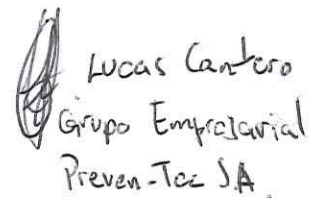 Lucas Cantero
Grupo Empresarial
Preven-Tec S.A